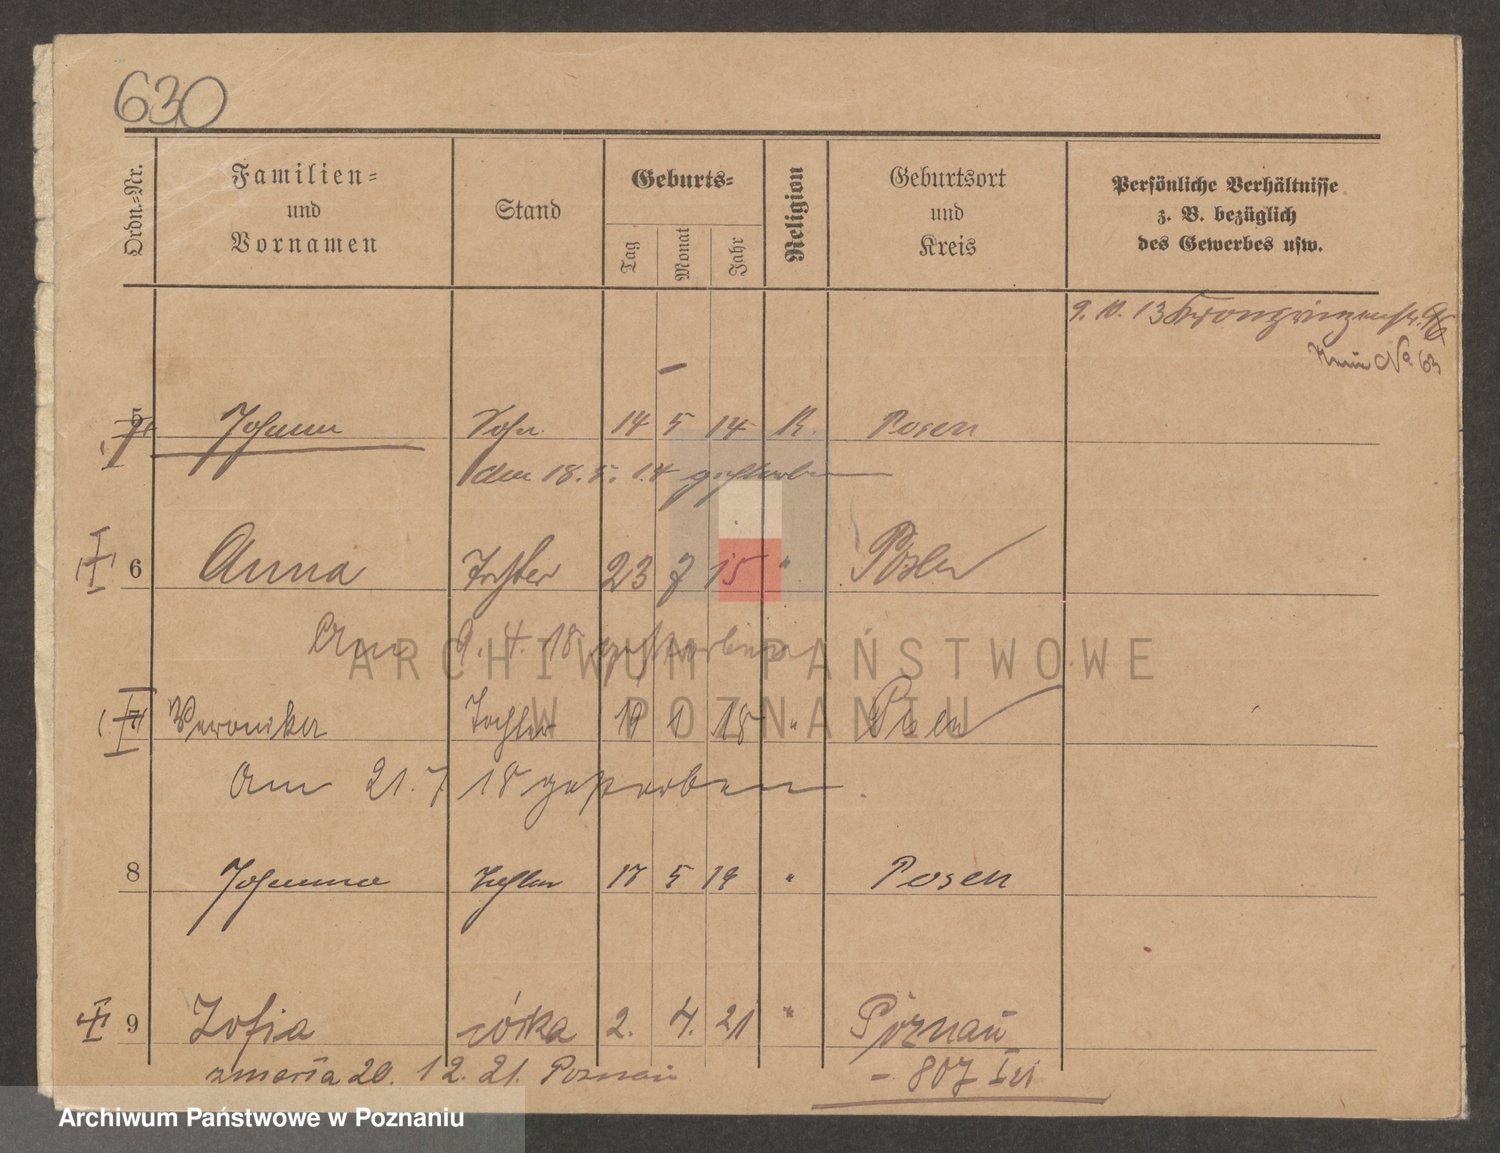 630
Ordn.-Nr.
Familien-
und
Vornamen
Stand
Geburts-
Tag
Monat
Jahr
Religion
Geburtsort
und
Kreis
Persönliche Verhältnisse
z. B. bezüglich
des Gewerbes usw.
9. 10. 13 Kronprinzenstr.
No 63
5 Johann Sohn 14 5 14 K. Posen
den 18. 5. 14 gestorben
6 Anna Tochter 23 7 15 " Posen
Am 9. 4. 18 gestorben
ARCHIWUM PAŃSTWOWE
W POZNANIU
7 Veronika Tochter 1 18 " Posen
Am 21. 7 18 gestorben.
8 Johanna Tochter 17 5 19 " Posen
9 Zofia córka 2. 4. 21 " Poznań
zmarła 20. 12. 21. Poznań - 807
Archiwum Państwowe w Poznaniu